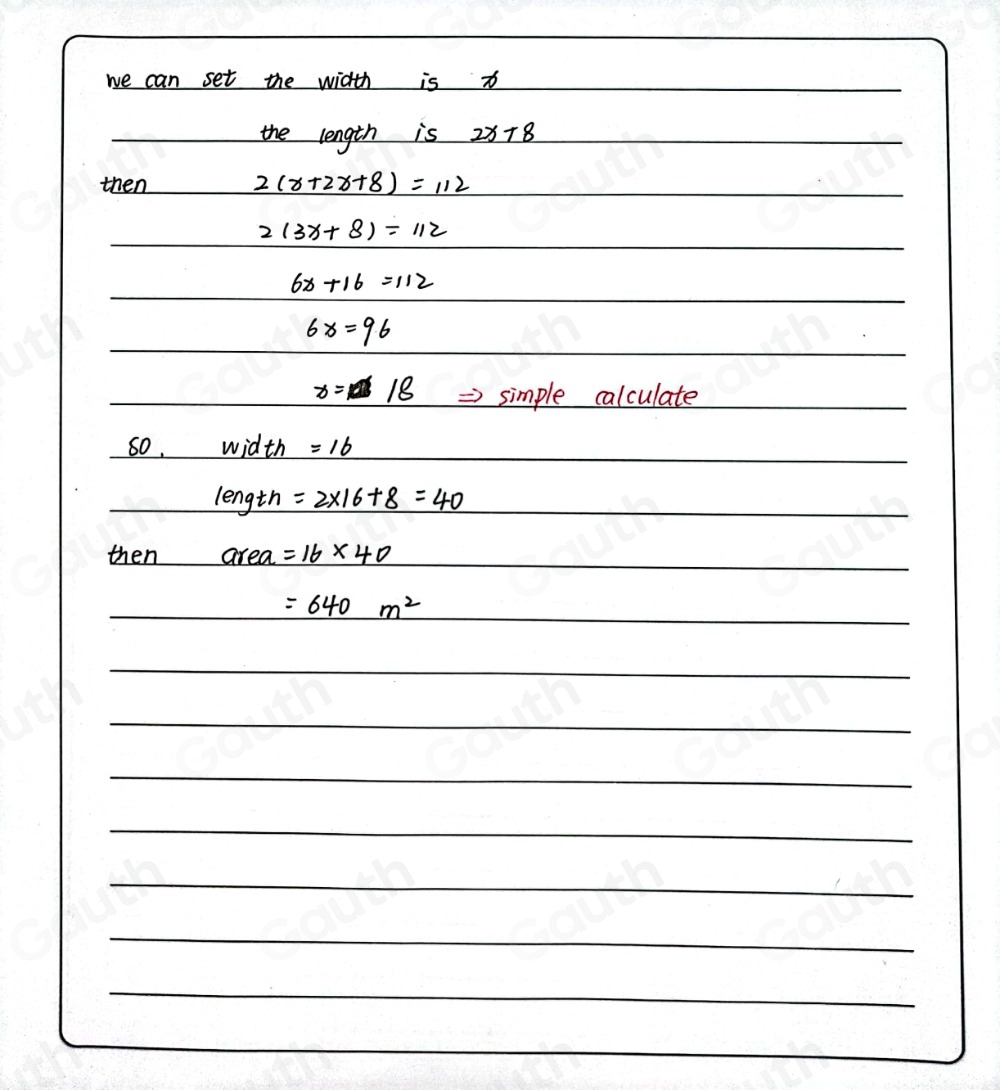 we can set the width is x
the length is 2x+8
then 2(x+2x+8) = 112
2(3x+8) = 112
6x+16 = 112
6x = 96
x = 18 ⇒ simple calculate
so. width = 16
length = 2×16+8 = 40
then area = 16×40
= 640 m²